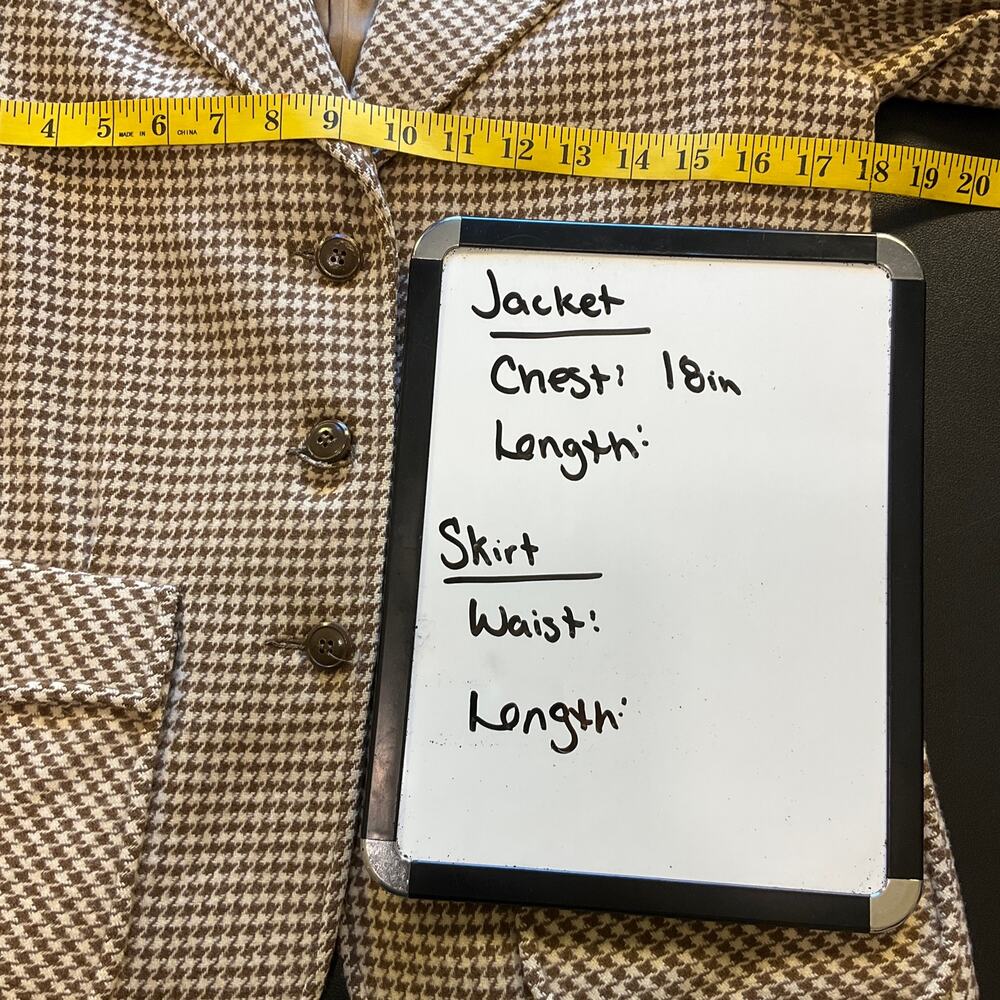 4 5 MADE IN 6 CHINA 7 8 9 10 11 12 13 14 15 16 17 18 19 20
Jacket
Chest: 18in
Length:
Skirt
Waist:
Length: